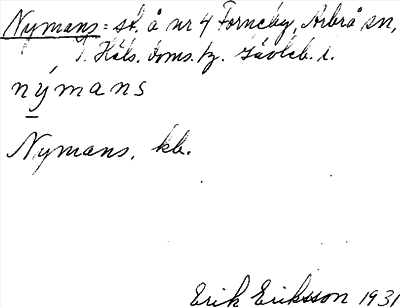 Nymans = st. å nr 4 Forneby, Arbrå sn,
V. Häls. doms. tg. Gävleb. l.
nýmans
Nymans, kb.
Erik Eriksson 1931